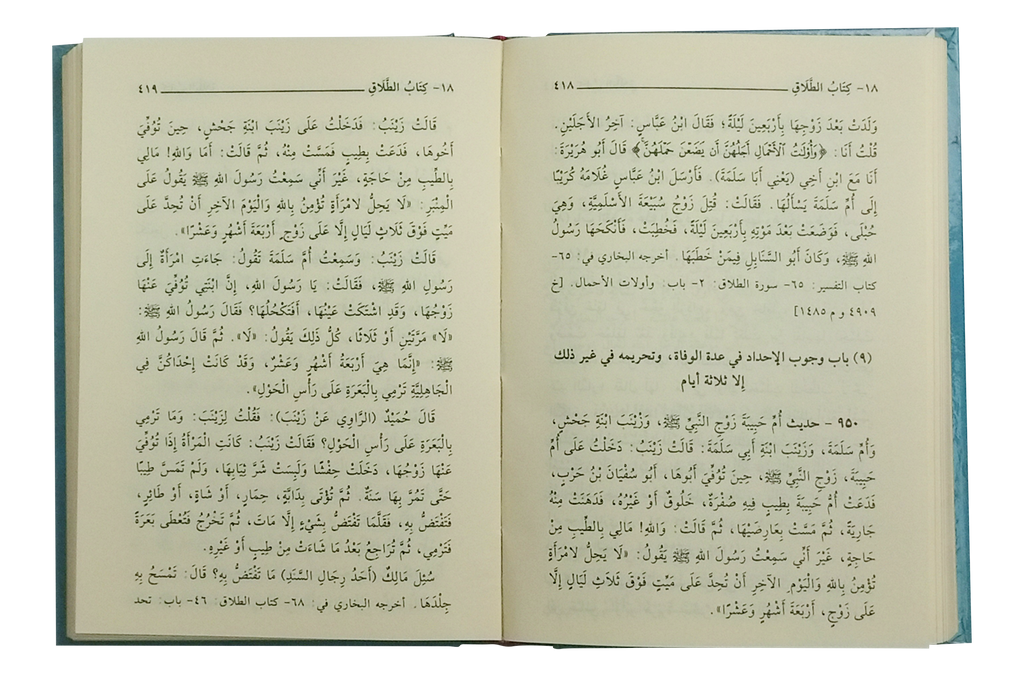 ١٨- كِتَابُ الطَّلَاقِ ٤١٨
وَلَدَتْ بَعْدَ زَوْجِهَا بِأَرْبَعِينَ لَيْلَةً؛ فَقَالَ ابْنُ عَبَّاسٍ: آخِرُ الأَجَلَيْنِ.
قُلْتُ أَنَا: ﴿وَأُوْلَٰتُ ٱلْأَحْمَالِ أَجَلُهُنَّ أَن يَضَعْنَ حَمْلَهُنَّ﴾ قَالَ أَبُو هُرَيْرَةَ:
أَنَا مَعَ ابْنِ أَخِي (يَعْنِي أَبَا سَلَمَةَ). فَأَرْسَلَ ابْنُ عَبَّاسٍ غُلَامَهُ كُرَيْبًا
إِلَى أُمِّ سَلَمَةَ يَسْأَلُهَا. فَقَالَتْ: قُتِلَ زَوْجُ سُبَيْعَةَ الأَسْلَمِيَّةِ، وَهِيَ
حُبْلَى، فَوَضَعَتْ بَعْدَ مَوْتِهِ بِأَرْبَعِينَ لَيْلَةً، فَخُطِبَتْ، فَأَنْكَحَهَا رَسُولُ
اللهِ ﷺ، وَكَانَ أَبُو السَّنَابِلِ فِيمَنْ خَطَبَهَا. أخرجه البخاري في: ٦٥-
كتاب التفسير: ٦٥- سورة الطلاق: ٢- باب: وأولات الأحمال. [خ
٤٩٠٩ و م ١٤٨٥]
(٩) باب وجوب الإحداد في عدة الوفاة، وتحريمه في غير ذلك
إلا ثلاثة أيام
٩٥٠ - حديث أُمِّ حَبِيبَةَ زَوْجِ النَّبِيِّ ﷺ، وَزَيْنَبَ ابْنَةِ جَحْشٍ،
وَأُمِّ سَلَمَةَ، وَزَيْنَبَ ابْنَةِ أَبِي سَلَمَةَ: قَالَتْ زَيْنَبُ: دَخَلْتُ عَلَى أُمِّ
حَبِيبَةَ، زَوْجِ النَّبِيِّ ﷺ، حِينَ تُوُفِّيَ أَبُوهَا، أَبُو سُفْيَانَ بْنُ حَرْبٍ،
فَدَعَتْ أُمُّ حَبِيبَةَ بِطِيبٍ فِيهِ صُفْرَةٌ، خَلُوقٌ أَوْ غَيْرُهُ، فَدَهَنَتْ مِنْهُ
جَارِيَةً، ثُمَّ مَسَّتْ بِعَارِضَيْهَا، ثُمَّ قَالَتْ: وَاللهِ! مَالِي بِالطِّيبِ مِنْ
حَاجَةٍ، غَيْرَ أَنِّي سَمِعْتُ رَسُولَ اللهِ ﷺ يَقُولُ: «لَا يَحِلُّ لِامْرَأَةٍ
تُؤْمِنُ بِاللهِ وَالْيَوْمِ الآخِرِ أَنْ تُحِدَّ عَلَى مَيِّتٍ فَوْقَ ثَلَاثِ لَيَالٍ إِلَّا
عَلَى زَوْجٍ، أَرْبَعَةَ أَشْهُرٍ وَعَشْرًا».
١٨- كِتَابُ الطَّلَاقِ ٤١٩
قَالَتْ زَيْنَبُ: فَدَخَلْتُ عَلَى زَيْنَبَ ابْنَةِ جَحْشٍ، حِينَ تُوُفِّيَ
أَخُوهَا، فَدَعَتْ بِطِيبٍ فَمَسَّتْ مِنْهُ، ثُمَّ قَالَتْ: أَمَا وَاللهِ! مَالِي
بِالطِّيبِ مِنْ حَاجَةٍ، غَيْرَ أَنِّي سَمِعْتُ رَسُولَ اللهِ ﷺ يَقُولُ عَلَى
الْمِنْبَرِ: «لَا يَحِلُّ لِامْرَأَةٍ تُؤْمِنُ بِاللهِ وَالْيَوْمِ الآخِرِ أَنْ تُحِدَّ عَلَى
مَيِّتٍ فَوْقَ ثَلَاثِ لَيَالٍ إِلَّا عَلَى زَوْجٍ أَرْبَعَةَ أَشْهُرٍ وَعَشْرًا».
قَالَتْ زَيْنَبُ: وَسَمِعْتُ أُمَّ سَلَمَةَ تَقُولُ: جَاءَتِ امْرَأَةٌ إِلَى
رَسُولِ اللهِ ﷺ، فَقَالَتْ: يَا رَسُولَ اللهِ، إِنَّ ابْنَتِي تُوُفِّيَ عَنْهَا
زَوْجُهَا، وَقَدِ اشْتَكَتْ عَيْنُهَا، أَفَتَكْحُلُهَا؟ فَقَالَ رَسُولُ اللهِ ﷺ:
«لَا» مَرَّتَيْنِ أَوْ ثَلَاثًا، كُلُّ ذَلِكَ يَقُولُ: «لَا». ثُمَّ قَالَ رَسُولُ اللهِ
ﷺ: «إِنَّمَا هِيَ أَرْبَعَةُ أَشْهُرٍ وَعَشْرٌ، وَقَدْ كَانَتْ إِحْدَاكُنَّ فِي
الْجَاهِلِيَّةِ تَرْمِي بِالْبَعَرَةِ عَلَى رَأْسِ الْحَوْلِ».
قَالَ حُمَيْدٌ (الرَّاوِي عَنْ زَيْنَبَ): فَقُلْتُ لِزَيْنَبَ: وَمَا تَرْمِي
بِالْبَعَرَةِ عَلَى رَأْسِ الْحَوْلِ؟ فَقَالَتْ زَيْنَبُ: كَانَتِ الْمَرْأَةُ إِذَا تُوُفِّيَ
عَنْهَا زَوْجُهَا، دَخَلَتْ حِفْشًا وَلَبِسَتْ شَرَّ ثِيَابِهَا، وَلَمْ تَمَسَّ طِيبًا
حَتَّى تَمُرَّ بِهَا سَنَةٌ. ثُمَّ تُؤْتَى بِدَابَّةٍ، حِمَارٍ، أَوْ شَاةٍ، أَوْ طَائِرٍ،
فَتَفْتَضُّ بِهِ، فَقَلَّمَا تَفْتَضُّ بِشَيْءٍ إِلَّا مَاتَ، ثُمَّ تَخْرُجُ فَتُعْطَى بَعَرَةً
فَتَرْمِي، ثُمَّ تُرَاجِعُ بَعْدُ مَا شَاءَتْ مِنْ طِيبٍ أَوْ غَيْرِهِ.
سُئِلَ مَالِكٌ (أَحَدُ رِجَالِ السَّنَدِ) مَا تَفْتَضُّ بِهِ؟ قَالَ: تَمْسَحُ بِهِ
جِلْدَهَا. أخرجه البخاري في: ٦٨- كتاب الطلاق: ٤٦- باب: تحد